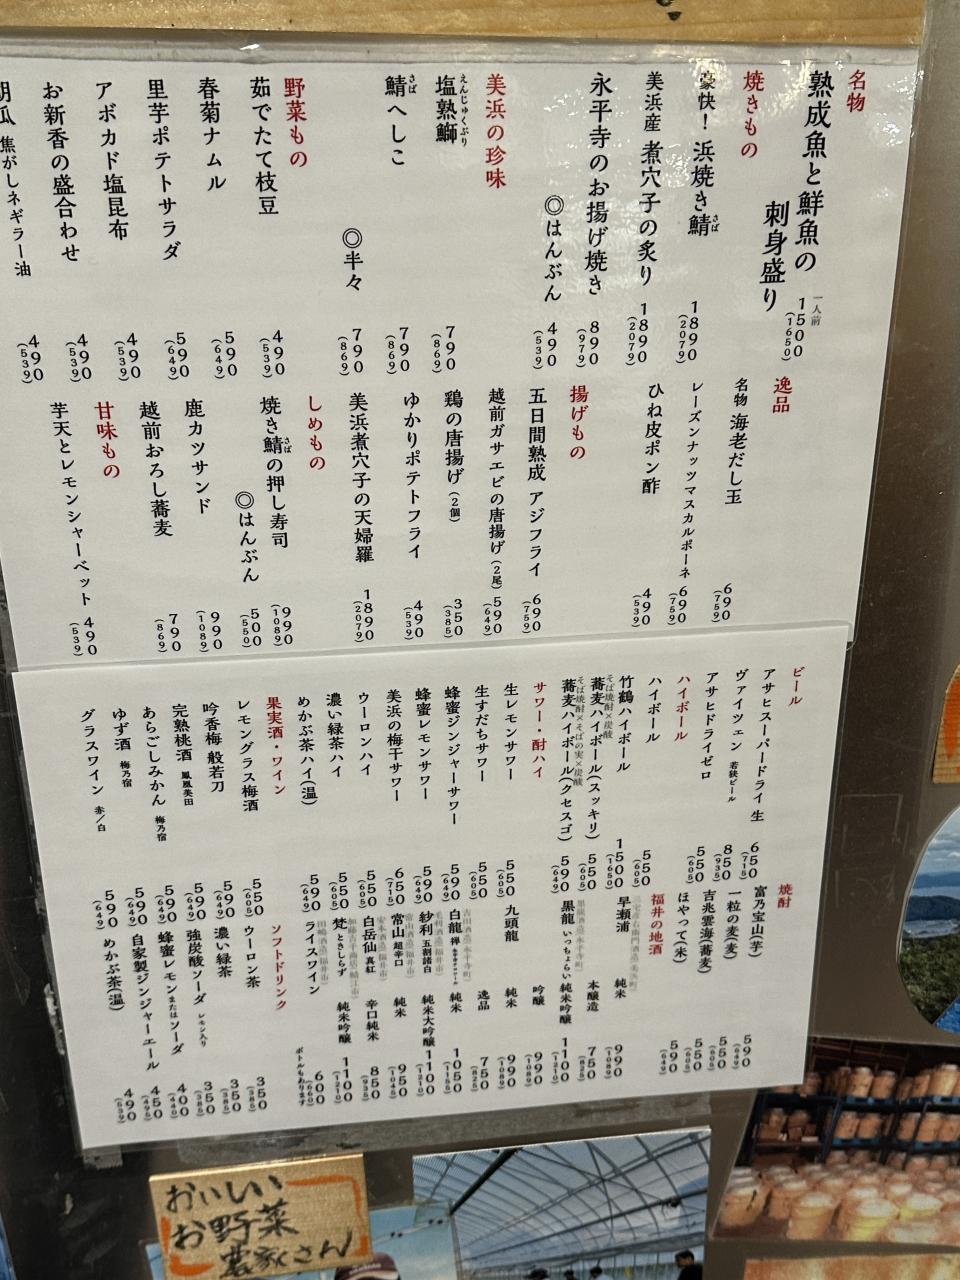 名物
熟成魚と鮮魚の
刺身盛り
一人前
1500
(1650)
焼きもの
豪快！浜焼き鯖
さば
1890
(2079)
美浜産 煮穴子の炙り
1890
(2079)
永平寺のお揚げ焼き
890
(979)
◎はんぶん
490
(539)
美浜の珍味
塩熟鰤
えんじゅくぶり
790
(869)
鯖へしこ
さば
790
(869)
◎半々
790
(869)
野菜もの
茹でたて枝豆
490
(539)
春菊ナムル
590
(649)
里芋ポテトサラダ
590
(649)
アボカド塩昆布
490
(539)
お新香の盛合わせ
490
(539)
胡瓜 焦がしネギラー油
490
(539)
逸品
名物 海老だし玉
690
(759)
レーズンナッツマスカルポーネ
690
(759)
ひね皮ポン酢
490
(539)
揚げもの
五日間熟成 アジフライ
690
(759)
越前ガサエビの唐揚げ(2尾)
590
(649)
鶏の唐揚げ(2個)
350
(385)
ゆかりポテトフライ
490
(539)
美浜煮穴子の天婦羅
1890
(2079)
しめもの
焼き鯖の押し寿司
さば
990
(1089)
◎はんぶん
500
(550)
鹿カツサンド
990
(1089)
越前おろし蕎麦
790
(869)
甘味もの
芋天とレモンシャーベット
490
(539)
ビール
アサヒスーパードライ 生
650
(715)
ヴァイツェン 若狭ビール
850
(935)
アサヒドライゼロ
550
(605)
ハイボール
ハイボール
550
(605)
竹鶴ハイボール
1500
(1650)
そば焼酎×炭酸
蕎麦ハイボール(スッキリ)
550
(605)
そば焼酎×そばの実×炭酸
蕎麦ハイボール(クセスゴ)
590
(649)
サワー・酎ハイ
生レモンサワー
550
(605)
生すだちサワー
550
(605)
蜂蜜ジンジャーサワー
590
(649)
蜂蜜レモンサワー
590
(649)
美浜の梅干サワー
650
(715)
ウーロンハイ
550
(605)
濃い緑茶ハイ
550
(605)
めかぶ茶ハイ(温)
590
(649)
果実酒・ワイン
レモングラス梅酒
550
(605)
吟香梅 般若刀
590
(649)
完熟桃酒 鳳凰美田
590
(649)
あらごしみかん 梅乃宿
590
(649)
ゆず酒 梅乃宿
590
(649)
グラスワイン 赤/白
590
(649)
焼酎
富乃宝山(芋)
590
(649)
一粒の麦(麦)
550
(605)
吉兆雲海(蕎麦)
550
(605)
ほやって(米)
590
(649)
福井の地酒
早瀬浦 純米
990
(1089)
本醸造
750
(825)
黒龍 いっちょらい 純米吟醸
1100
(1210)
吟醸
990
(1089)
九頭龍 純米
990
(1089)
逸品
750
(825)
白龍 純米
1050
紗利 五割諸白 純米大吟醸
1100
(1210)
常山 超辛口 純米
950
(1045)
白岳仙 真紅 辛口純米
850
(935)
梵 ときしらず 純米吟醸
1100
ライスワイン
600
(660)
ボトルもあります
ソフトドリンク
ウーロン茶
350
(385)
濃い緑茶
350
(385)
強炭酸ソーダ レモン入り
350
(385)
蜂蜜レモンまたはソーダ
400
(440)
自家製ジンジャーエール
450
(495)
めかぶ茶(温)
490
(539)
おいしい
お野菜
農家さん